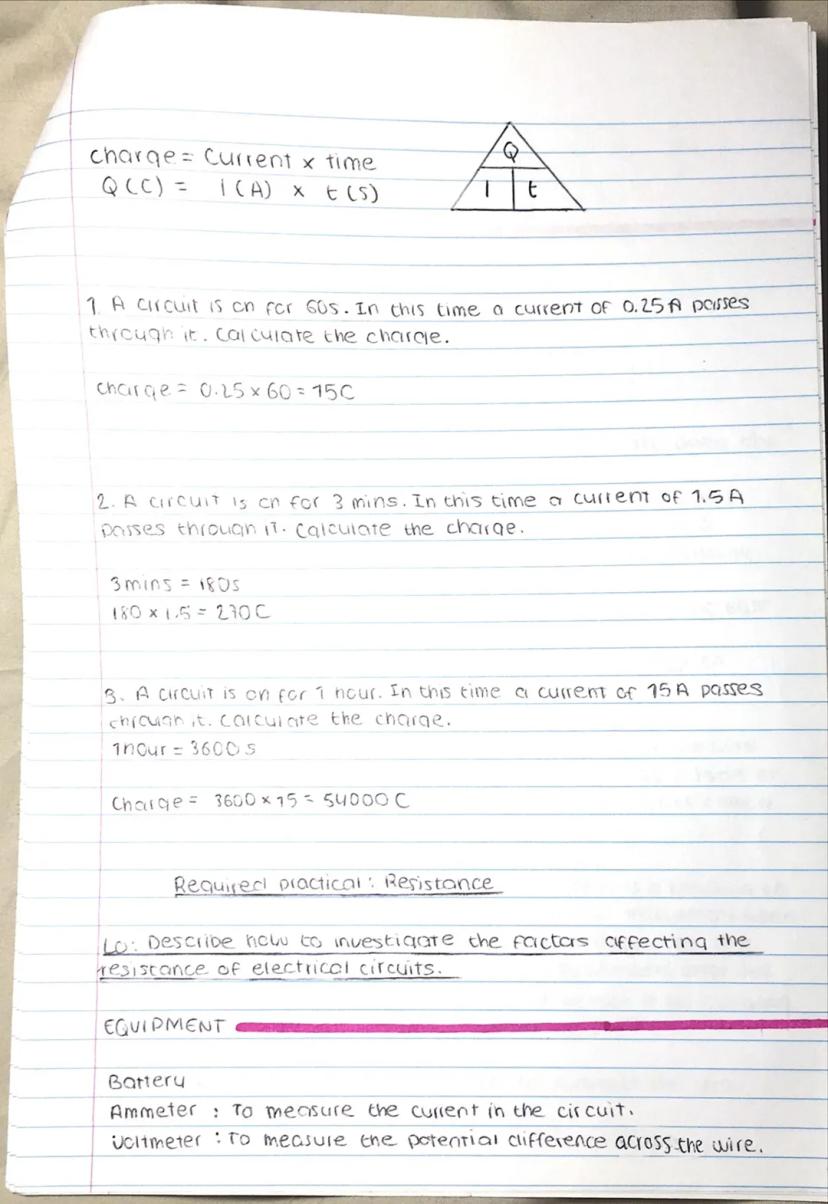 charge = current × time
Q (C) = I (A) × t (s)
Q
I t
1. A circuit is on for 60s. In this time a current of 0.25A passes
through it. Calculate the charge.
charge = 0.25 × 60 = 15C
2. A circuit is on for 3 mins. In this time a current of 1.5A
passes through it. Calculate the charge.
3mins = 180s
180 × 1.5 = 270C
3. A circuit is on for 1 hour. In this time a current of 15A passes
through it. Calculate the charge.
1hour = 3600s
Charge = 3600 × 15 = 54000C
Required practical: Resistance
LO: Describe how to investigate the factors affecting the
resistance of electrical circuits.
EQUIPMENT
Battery
Ammeter : To measure the current in the circuit.
Voltmeter : To measure the potential difference across the wire.